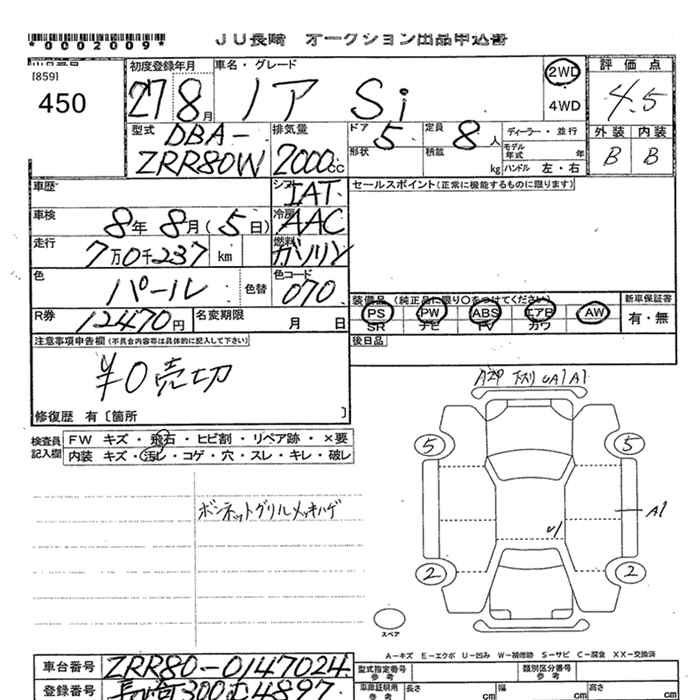 *0002009*
JU長崎 オークション出品申込書
[859]
450
初度登録年月 27 8月
車名・グレード ノア Si
2WD
4WD
評価点 4.5
外装 内装
B B
型式 DBA-
ZRR80W
排気量 2000cc
ドア 5
形状
定員 8人
積載 kg
ディーラー・並行
モデル年式 年
ハンドル 左・右
車歴
シフト IAT
セールスポイント(正常に機能するものに限ります)
車検 8年 8月(5日)
冷房 AAC
走行 7万0千237 km
燃料 ガソリン
色 パール 色替
色コード 070
装備品 (純正品に限り○をつけてください) 新車保証書
PS PW ABS エアB AW 有・無
SR ナビ TV カワ
R券 12470円 名変期限 月 日
後日品
注意事項申告欄(不具合内容等は具体的に記入して下さい)
¥0売切
修復歴 有〔箇所 〕
検査員記入欄
FW キズ・飛石・ヒビ割・リペア跡・×要
内装 キズ・汚レ・コゲ・穴・スレ・キレ・破レ
ボンネットグリルメッキハゲ
A2P 下スリ UA1 A1
5 5
A1
U1
2 2
スペア
A-キズ E-エクボ U-凹み W-補修跡 S-サビ C-腐食 XX-交換済
車台番号 ZRR80-0147024
型式指定番号 参考
類別区分番号 参考
登録番号 長崎300む4897
車庫証明用 参考 長さ cm 幅 cm 高さ cm